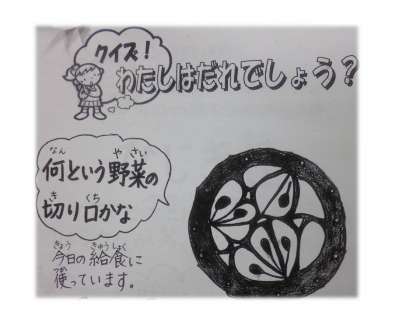 クイズ!
わたしはだれでしょう?
何という野菜の
なん やさい
切り口かな
き くち
今日の給食に
きょう きゅうしょく
使っています。
つか